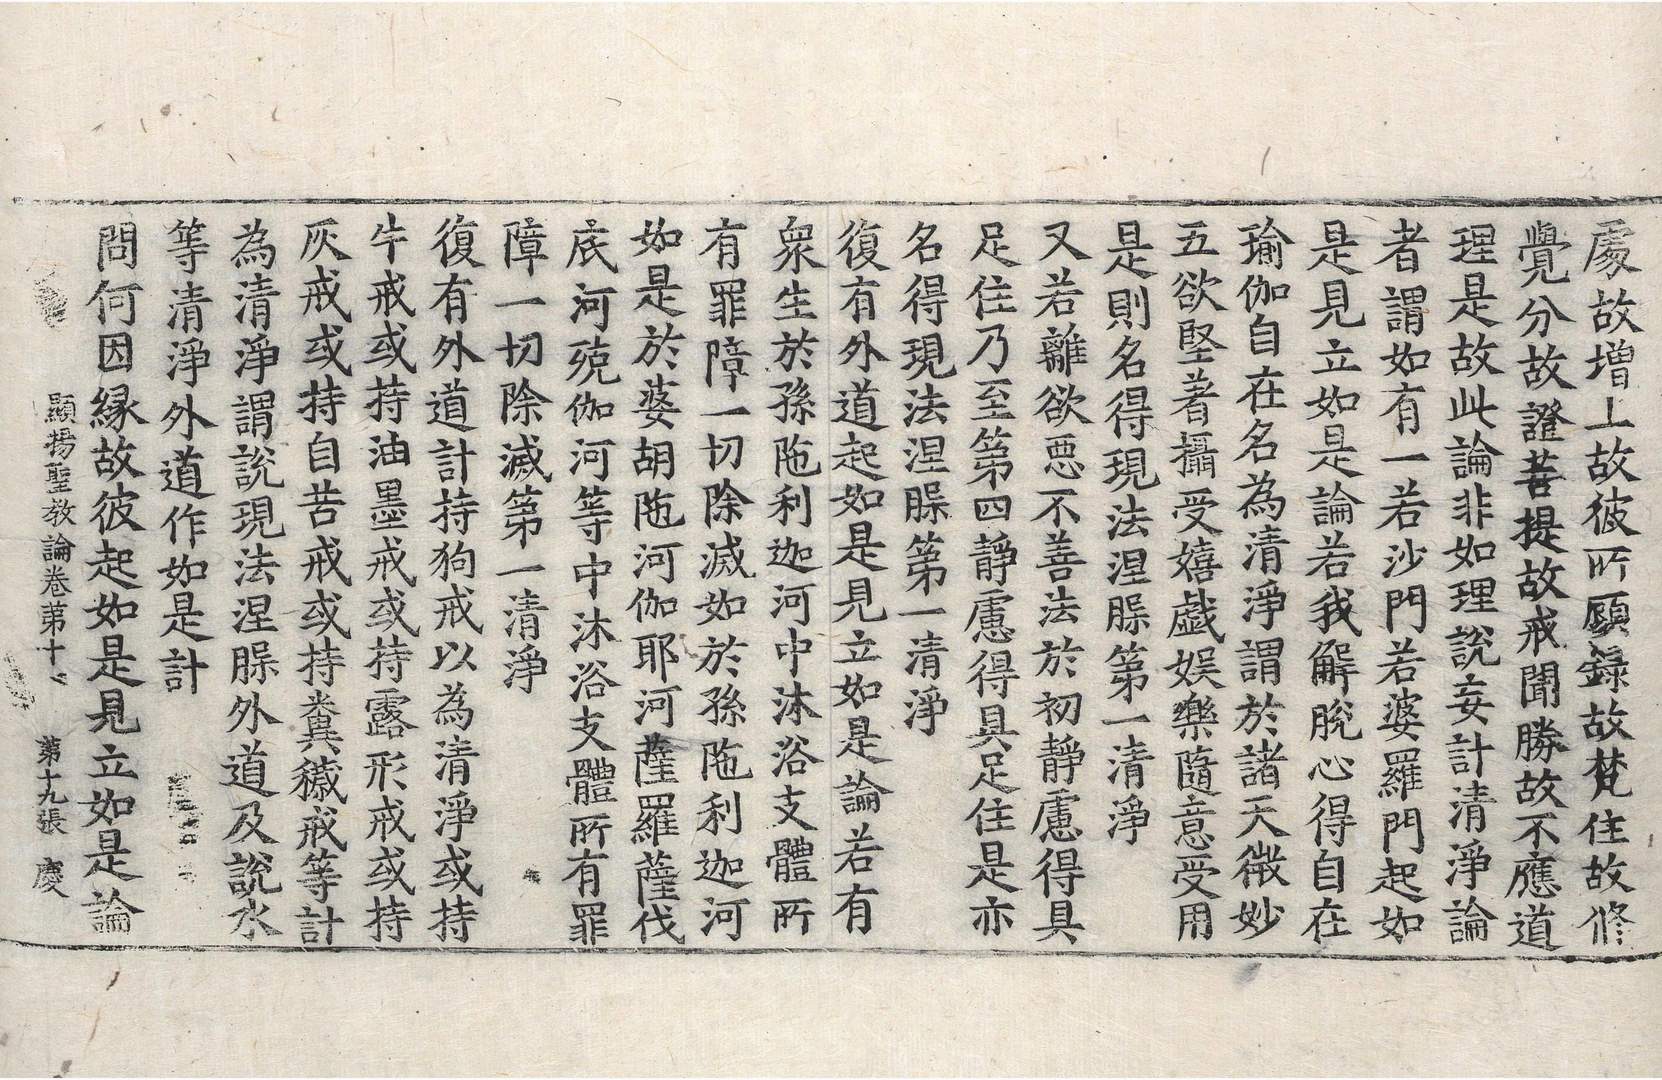 處故増上故彼所顧録故梵住故修
覺分故證菩提故戒聞勝故不應道
理是故此論非如理說妄計清淨論
者謂如有一若沙門若婆羅門起如
是見立如是論若我解脫心得自在
瑜伽自在名為清淨謂於諸天微妙
五欲堅著攝受嬉戲娛樂隨意受用
是則名得現法涅腜第一清淨
又若離欲惡不善法於初靜慮得具
足住乃至第四靜慮得具足住是亦
名得現法涅腜第一清淨
復有外道起如是見立如是論若有
衆生於孫陁利迦河中沐浴支體所
有罪障一切除滅如於孫陁利迦河
如是於婆胡陁河伽耶河薩羅薩伐
底河殑伽河等中沐浴支體所有罪
障一切除滅第一清淨
復有外道計持狗戒以為清淨或持
牛戒或持油墨戒或持露形戒或持
灰戒或持自苦戒或持糞穢戒等計
為清淨謂說現法涅腜外道及說水
等清淨外道作如是計
問何因縁故彼起如是見立如是論
顯揚聖教論卷苐十 苐十九張 慶